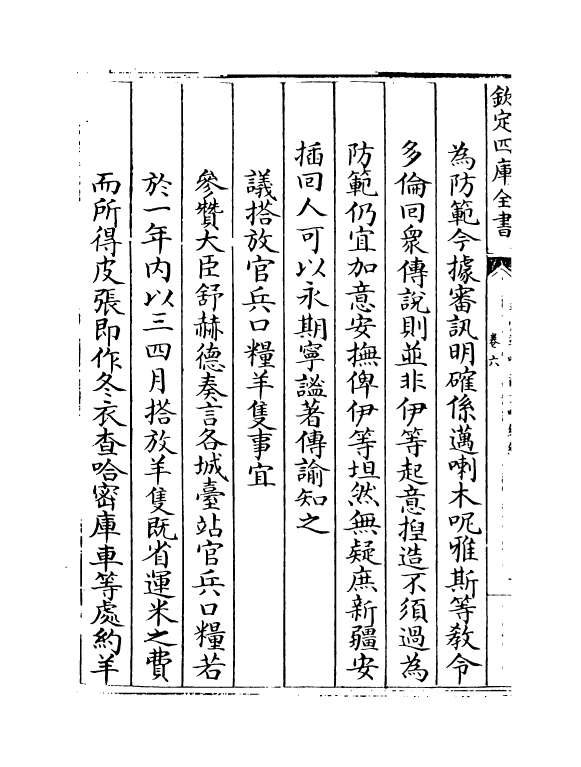 欽定四庫全書
卷六
為防範今據審訊明確係邁喇木呢雅斯等教令
多倫回衆傳說則並非伊等起意揑造不須過為
防範仍宜加意安撫俾伊等坦然無疑庶新疆安
插回人可以永期寧謐著傳諭知之
議搭放官兵口糧羊隻事宜
參贊大臣舒赫德奏言各城臺站官兵口糧若
於一年内以三四月搭放羊隻既省運米之費
而所得皮張即作冬衣查哈密庫車等處約羊